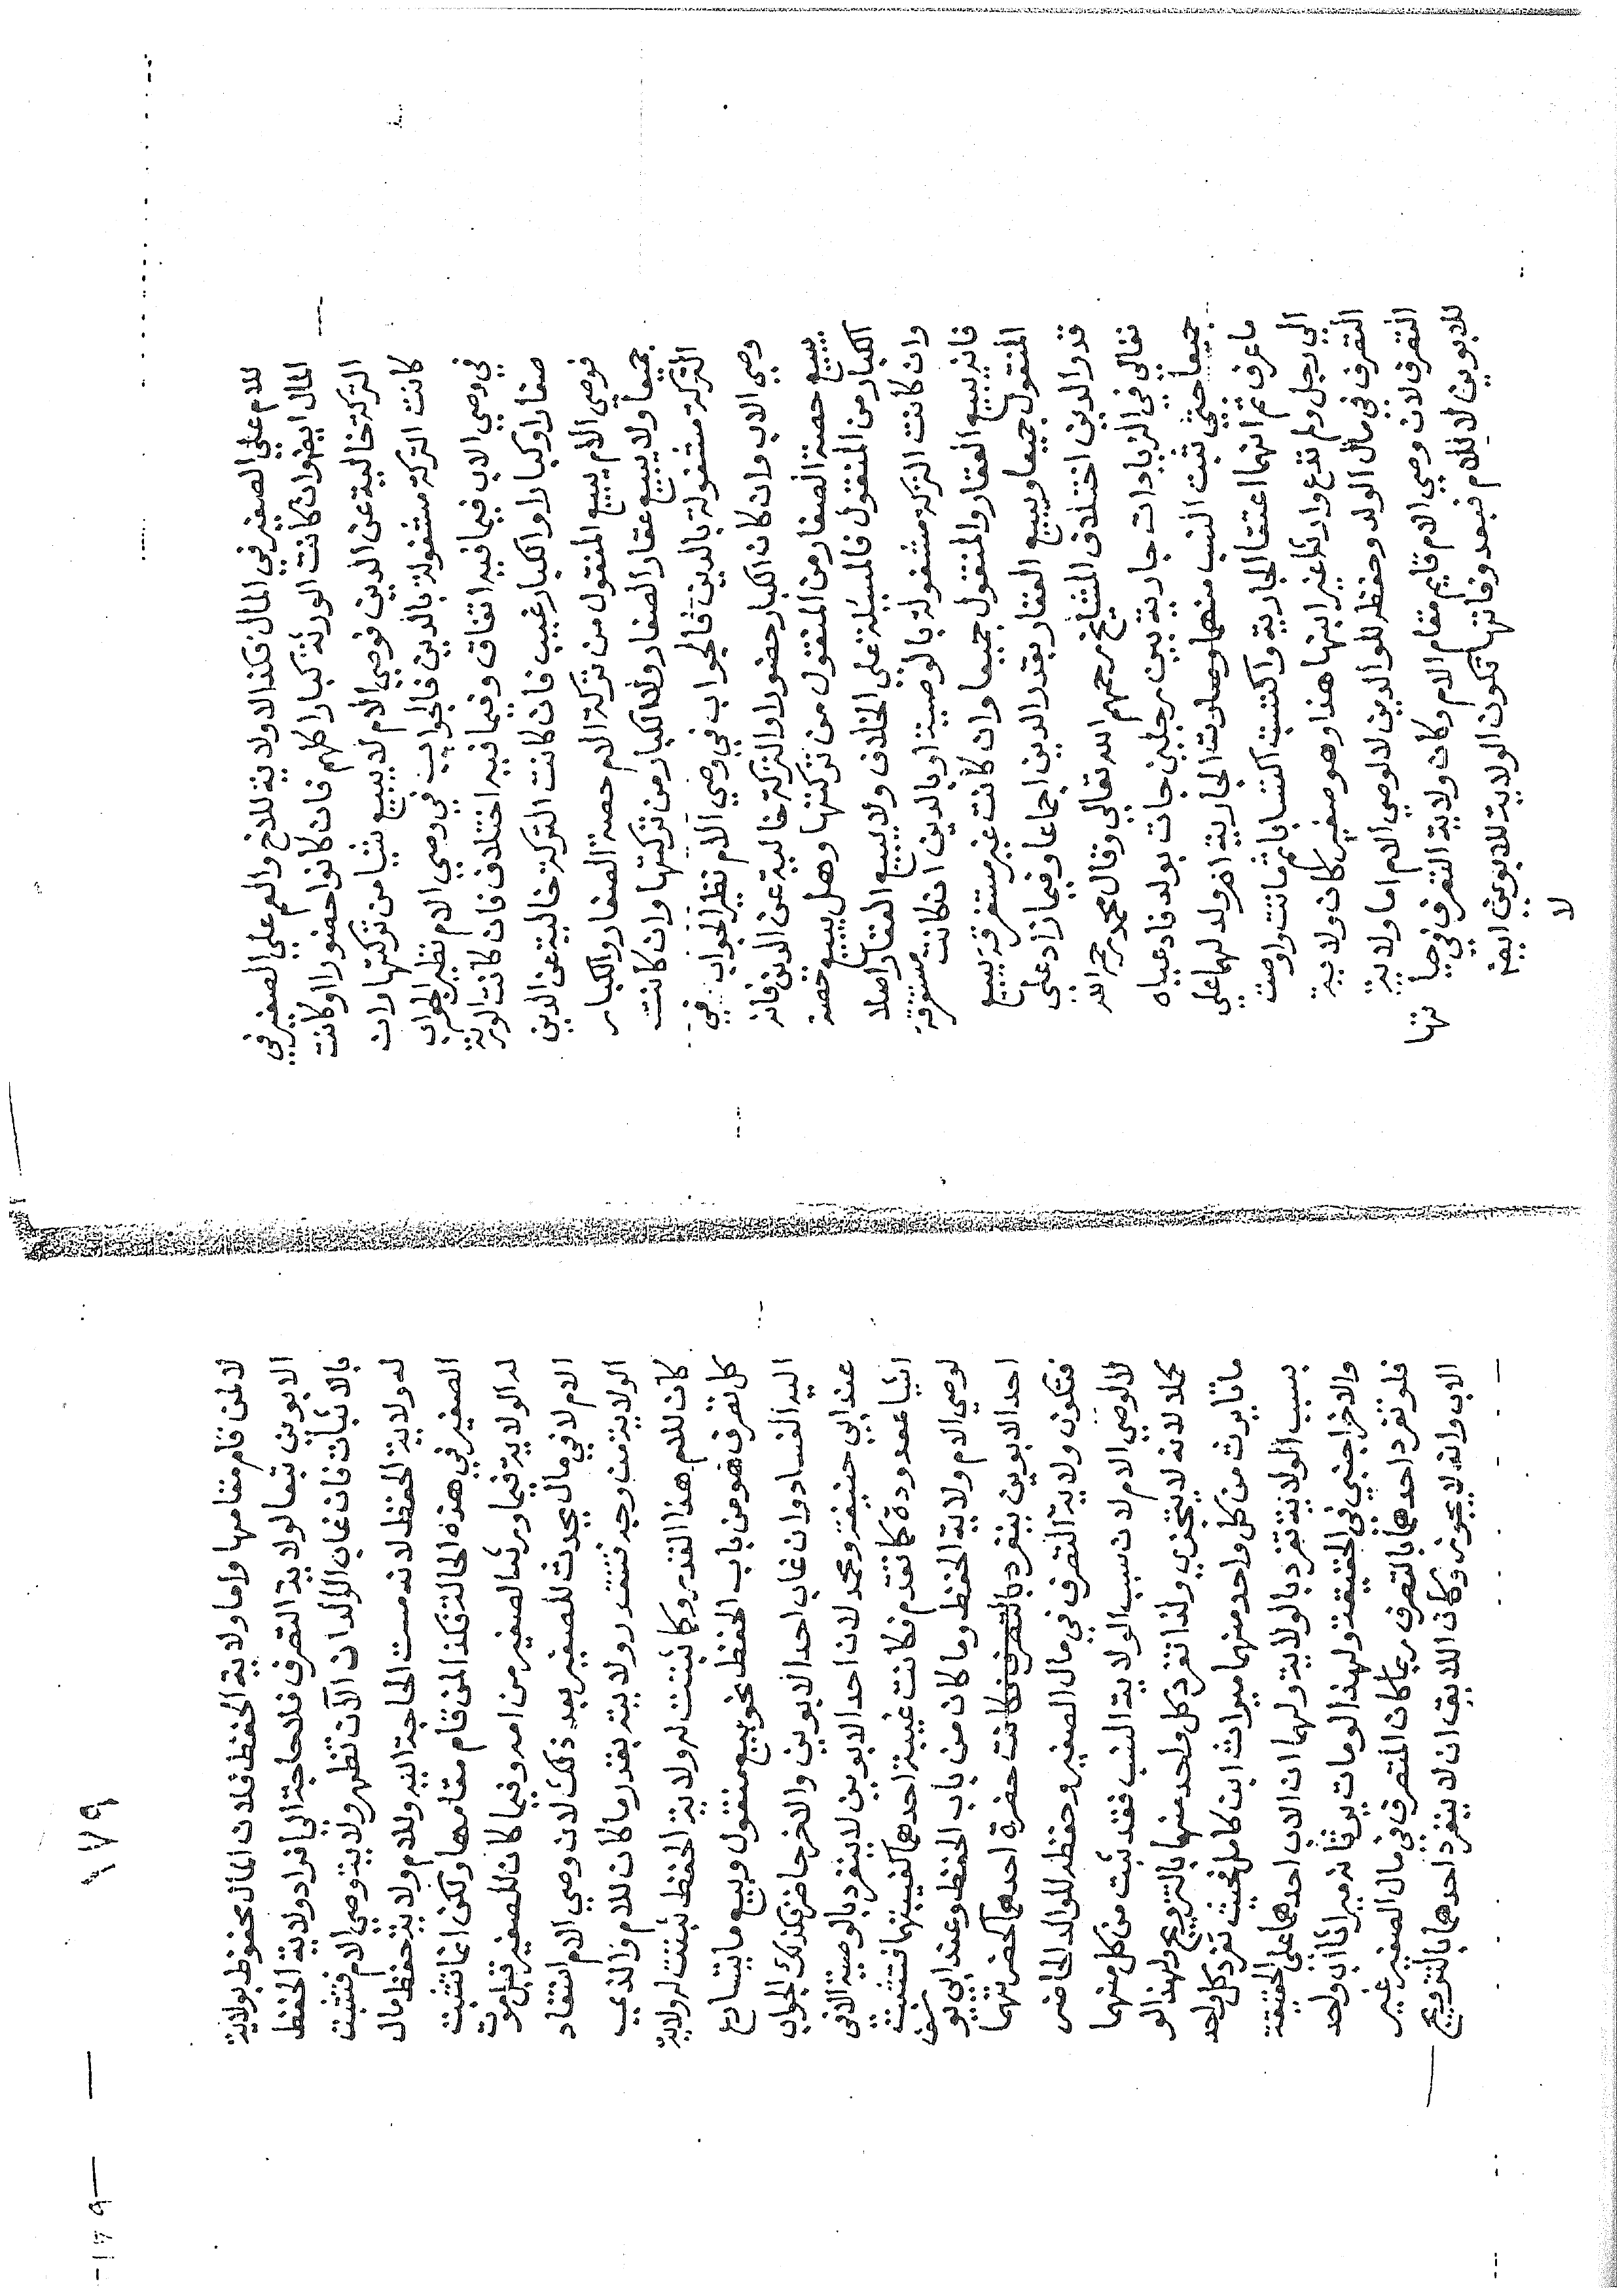 للام علي الصغير في المال فكذا لا ولاية للاخ والعم علي الصغير في
المال ايضا وان كانت الورثة كبارا كلهم فان كانوا حضورا وكانت
التركة خالية عن الدين فوصي الام لا يبيع شيا من تركتها وان
كانت التركة مشغولة بالدين فالجواب في وصي الام نظير الجواب
في وصي الاب فيما فيه اتفاق وفيما فيه اختلاف فان كانت الورثة
صغارا وكبارا والكبار غيب فان كانت التركة خالية عن الدين
فوصي الام يبيع المنقول من تركة الام حصة الصغار والكبار
جميعا ولا يبيع عقار الصغار ولا الكبار من تركتها وان كانت
التركة مشغولة بالدين فالجواب في وصي الام نظير الجواب في
وصي الاب وان كان الكبار حضورا والتركة خالية عن الدين فانه
يبيع حصة الصغار من المنقول من تركتها وهل يبيع حصة
الكبار من المنقول فالمسئلة علي الخلاف ولا يبيع العقار اصلا
وان كانت التركة مشغولة بالوصية او بالدين ان كانت مستغرقة
فانه يبيع العقار والمنقول جميعا وان كانت غير مستغرقة يبيع
المنقول جميعا ويبيع العقار بقدر الدين اجماعا وفيما زاد علي
قدر الدين اختلاف المشايخ رحمهم الله تعالي وقال محمد رحمه الله
تعالي في الزيادات جارية بين رجلين جات بولد فادعياه
جميعا حتي ثبت النسب منهما وصارت الجارية ام ولد لهما علي
ما عرف ثم انهما اعتقا الجارية واكتسبت اكتسابا ثم ماتت واوصت
الي رجل ولم تدع وارثا غير ابنها هذا وهو صغير كان ولاية
التصرف في مال الولد وحفظه للوالدين لا لوصي الام اما ولاية
التصرف لان وصي الام قايم مقام الام وكان ولاية التصرف في حيا تها
للابوين لا للام فبعد وفاتها تكون الولاية للابوين ايضا
لا
١٧٩
لا لمن قام مقامها واما ولاية الحفظ فلان المال محفوظ بولاية
الابوين تبعا لولاية التصرف فلا حاجة الي افراد ولاية الحفظ
بالاثبات فان غاب الوالدان الآن تظهر ولاية وصي الام فتثبت
له ولاية الحفظ لانه مست الحاجة اليه وللام ولاية حفظ مال
الصغير في هذه الحالة فكذا لمن قام مقامها ولكن انما تثبت
له الولاية فيما ورث الصغير من امه وفيما كان للصغير قبل موت
الام لا في مال يحدث للصغير بعد ذلك لان وصي الام استفاد
الولاية من وجه فتتقدر ولايته بقدر ما كان للام والذي
كان للام هذا القدر وكما ثبتت له ولاية الحفظ ثبتت له ولاية
كل تصرف هو من باب الحفظ نحو بيع منقول وبيع ما يتسارع
اليه الفساد وان غاب احد الابوين والاخر حاضر فكذلك الجواب
عند ابي حنيفة ومحمد لان احد الابوين لا ينفرد بالوصية الا في
اشيا معدودة كما تقدم فكانت غيبة احدهما كغيبتهما فتثبت
لوصي الام ولاية الحفظ وما كان من باب الحفظ وعند ابي يوسف
احد الابوين ينفرد بالتصرف فكانت حضرة احدهما كحضرتهما
فتكون ولاية التصرف في مال الصغير وحفظه للوالد الحاضر
لا لوصي الام لان سبب الولاية النسب فقد ثبت من كل منهما
كملا لانه لا يتجزي ولذا تفرد كل واحد منهما بالتزويج ولهذا لو
ماتا يرث من كل واحد منهما ميراث ابن كامل بحيث تفرد كل واحد
بسبب الولاية تفرد بالولاية ولهما ان الاب احدهما علي الحقيقة
والاخر اجنبي في الحقيقة ولهذا لو مات يرثانه ميراث اب واحد
فلو تفرد احدهما بالتصرف ربما كان المتصرف في مال الصغير غير
الاب وانه لا يجوز وكان اللايق ان لا ينفرد احدهما بالتزويج
-١٧٩-